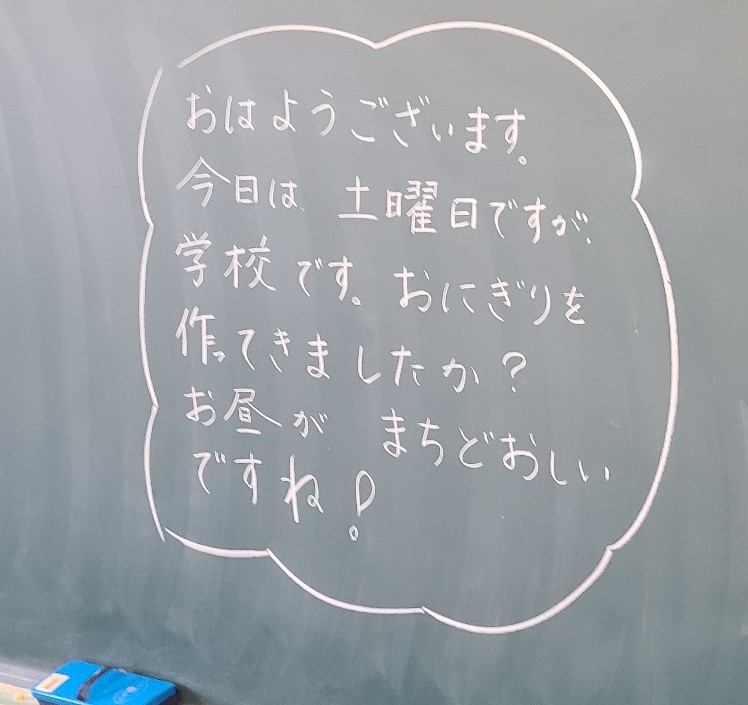 おはようございます。
今日は、土曜日ですが、
学校です。おにぎりを
作ってきましたか？
お昼が まちどおしい
ですね！